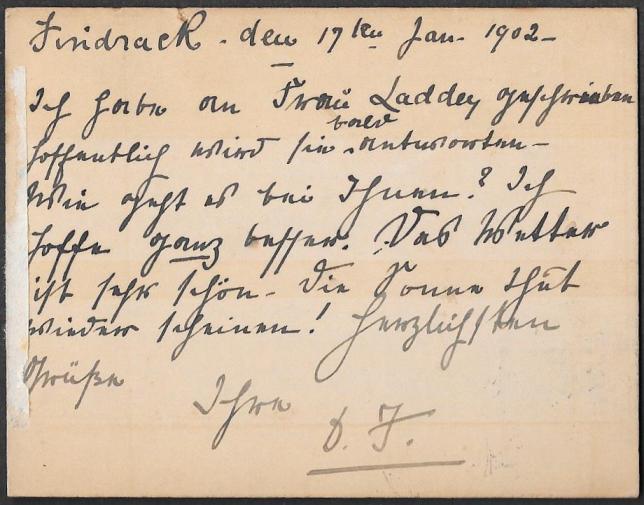 Findrack - den 17ten Jan. 1902 -
Ich habe an Frau Laddey geschrieben
hoffentlich wird sie bald antworten -
Wie geht es bei Ihnen? Ich
hoffe ganz besser. Das Wetter
ist sehr schön - die Sonne thut
wieder scheinen! Herzlichsten
Grüße
Ihre
D. F.